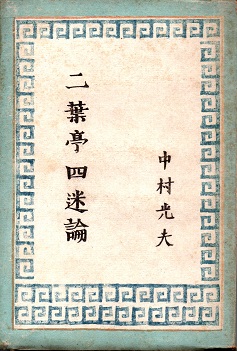 二葉亭四迷論
中村光夫